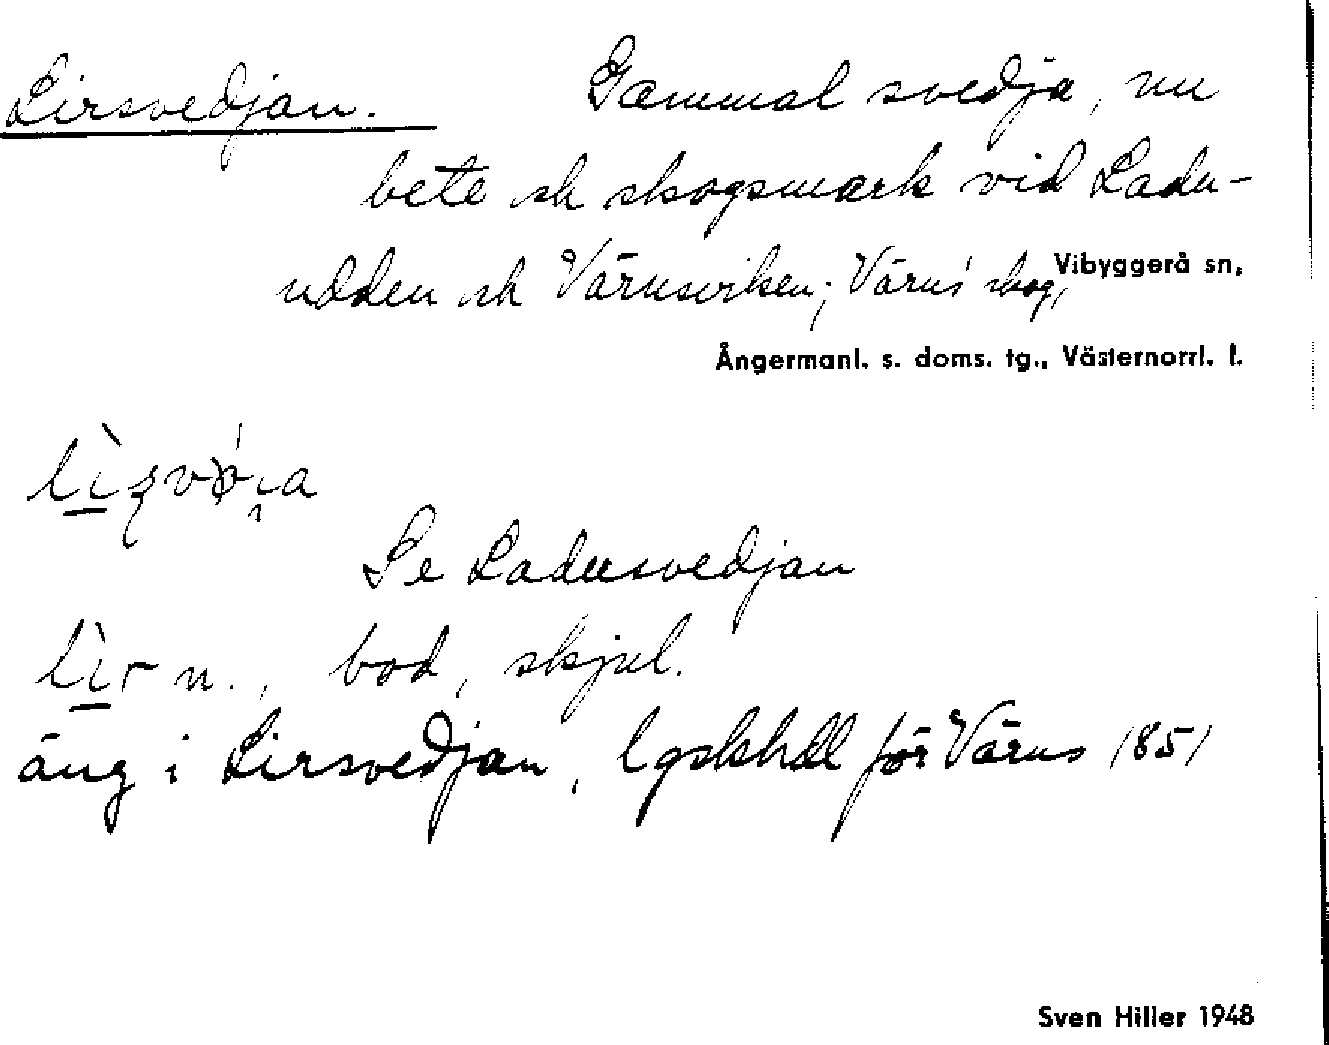 Lirsvedjan. Gammal svedja, nu
bete ch skogsmark vid Ladu-
udden ch Värnsviken; Värns' skog,
Vibyggerå sn,
Ångermanl. s. doms. tg., Västernorrl. l.
Se Ladusvedjan
lìr n., bod, skjul.
äng i Lirsvedjan, lgskhdl för Värns 1851
Sven Hiller 1948